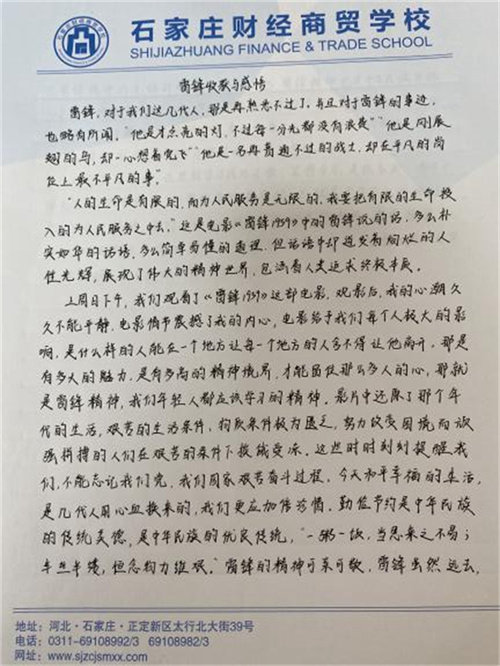 石家庄财经商贸学校
SHIJIAZHUANG FINANCE & TRADE SCHOOL
雷锋收获与感悟
雷锋，对于我们这几代人，那是再熟悉不过了，并且对于雷锋的事迹，
也略有所闻，“他是才点亮的灯，不过每一分光都没有浪费”“他是刚展
翅的鸟，却一心想着党飞”“他是一名再普通不过的战士，却在平凡的岗
位上最不平凡的事。
“人的生命是有限的，而为人民服务是无限的，我要把有限的生命投
入的为人民服务之中去。”这是电影《雷锋1959》中的雷锋说的话，多么朴
实如华的话语，多么简单易懂的道理，但话语中却迸发着绚烂的人
性光辉，展现了伟大的精神世界，包涵着人类追求终极本质。
上周日下午，我们观看了《雷锋1959》这部电影，观影后，我的心潮久
久不能平静，电影情节震撼了我的内心，电影给予我们每个人极大的影
响，是什么样的人能在一个地方让每一个地方的人舍不得让他离开，那是
有多大的魅力，是有多高的精神境界，才能留住那么多人的心，那就
是雷锋精神，我们年轻人都应该学习的精神。影片中还原了那个年
代的生活，艰苦的生活条件，物质条件极为匮乏，努力改变困境而顽
强拼搏的人们在艰苦的条件下
这些时时刻刻提醒我
们，不能忘记我们党，我们国家艰苦奋斗过程，今天和平幸福的生活，
是几代人用心血换来的，我们更应加倍珍惜。勤俭节约是中华民族
的传统美德，是中华民族的优良传统，“一粥一饭，当思来之不易；
半丝半缕，恒念物力维艰。”雷锋的精神可亲可敬，雷锋虽然远去，
地址：河北·石家庄·正定新区太行北大街39号
电话：0311-69108992/3 69108982/3
网址：www.sjzcjsmxx.com